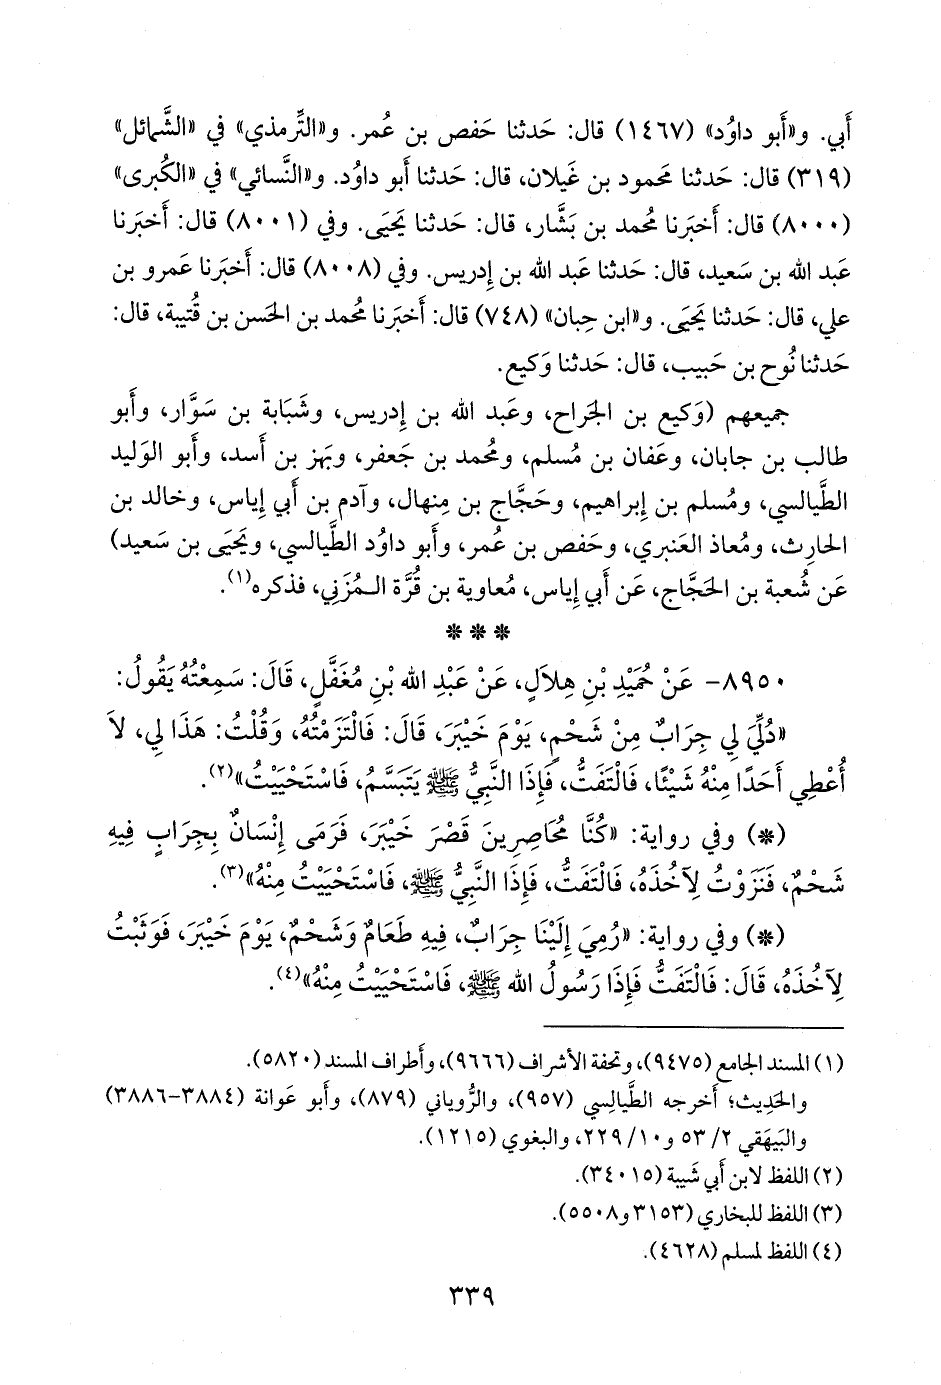 أَبي. و«أَبو داوُد» (١٤٦٧) قال: حَدثنا حَفص بن عُمر. و«التِّرمذي» في «الشَّمائل»
(٣١٩) قال: حَدثنا مَحمود بن غَيلان، قال: حَدثنا أَبو داوُد. و«النَّسائي» في «الكُبرى»
(٨٠٠٠) قال: أَخبَرنا مُحمد بن بَشَّار، قال: حَدثنا يَحيَى. وفي (٨٠٠١) قال: أَخبَرنا
عَبد الله بن سَعيد، قال: حَدثنا عَبد الله بن إِدريس. وفي (٨٠٠٨) قال: أَخبَرنا عَمرو بن
علي، قال: حَدثنا يَحيَى. و«ابن حِبان» (٧٤٨) قال: أَخبَرنا مُحمد بن الحَسن بن قُتيبة، قال:
حَدثنا نُوح بن حَبيب، قال: حَدثنا وَكيع.
جميعهم (وَكيع بن الجَراح، وعَبد الله بن إِدريس، وشَبَابة بن سَوَّار، وأَبو
طالب بن جابان، وعَفان بن مُسلم، ومُحمد بن جَعفر، وبَهز بن أَسد، وأَبو الوَليد
الطَّيالسي، ومُسلم بن إِبراهيم، وحَجَّاج بن مِنهال، وآدم بن أَبي إِياس، وخالد بن
الحارِث، ومُعاذ العَنبري، وحَفص بن عُمر، وأَبو داوُد الطَّيالسي، ويَحيَى بن سَعيد)
عَن شُعبة بن الحَجَّاج، عَن أَبي إِياس، مُعاوية بن قُرَّة الـمُزَني، فذكره(١).
* * *
٨٩٥٠- عَنْ حُمَيْدِ بْنِ هِلاَلٍ، عَنْ عَبْدِ الله بْنِ مُغَفَّلٍ، قَالَ: سَمِعْتُهُ يَقُولُ:
«دُلِّيَ لِي جِرَابٌ مِنْ شَحْمٍ، يَوْمَ خَيْبَرَ، قَالَ: فَالْتَزَمْتُهُ، وَقُلْتُ: هَذَا لِي، لاَ
أُعْطِي أَحَدًا مِنْهُ شَيْئًا، فَالْتَفَتُّ، فَإِذَا النَّبِيُّ ﷺ يَتَبَسَّمُ، فَاسْتَحْيَيْتُ»(٢).
(*) وفي رواية: «كُنَّا مُحَاصِرِينَ قَصْرَ خَيْبَرَ، فَرَمَى إِنْسَانٌ بِجِرَابٍ فِيهِ
شَحْمٌ، فَنَزَوْتُ لِآخُذَهُ، فَالْتَفَتُّ، فَإِذَا النَّبِيُّ ﷺ، فَاسْتَحْيَيْتُ مِنْهُ»(٣).
(*) وفي رواية: «رُمِيَ إِلَيْنَا جِرَابٌ، فِيهِ طَعَامٌ وَشَحْمٌ، يَوْمَ خَيْبَرَ، فَوَثَبْتُ
لِآخُذَهُ، قَالَ: فَالْتَفَتُّ فَإِذَا رَسُولُ الله ﷺ، فَاسْتَحْيَيْتُ مِنْهُ»(٤).
(١) المسند الجامع (٩٤٧٥)، وتحفة الأشراف (٩٦٦٦)، وأَطراف المسند (٥٨٢٠).
والحَدِيث؛ أَخرجه الطَّيالِسي (٩٥٧)، والرُّوياني (٨٧٩)، وأَبو عَوانة (٣٨٨٤-٣٨٨٦)
والبَيهَقي ٢/ ٥٣ و١٠/ ٢٢٩، والبغوي (١٢١٥).
(٢) اللفظ لابن أَبي شَيبة (٣٤٠١٥).
(٣) اللفظ للبخاري (٣١٥٣ و٥٥٠٨).
(٤) اللفظ لمسلم (٤٦٢٨).
٣٣٩